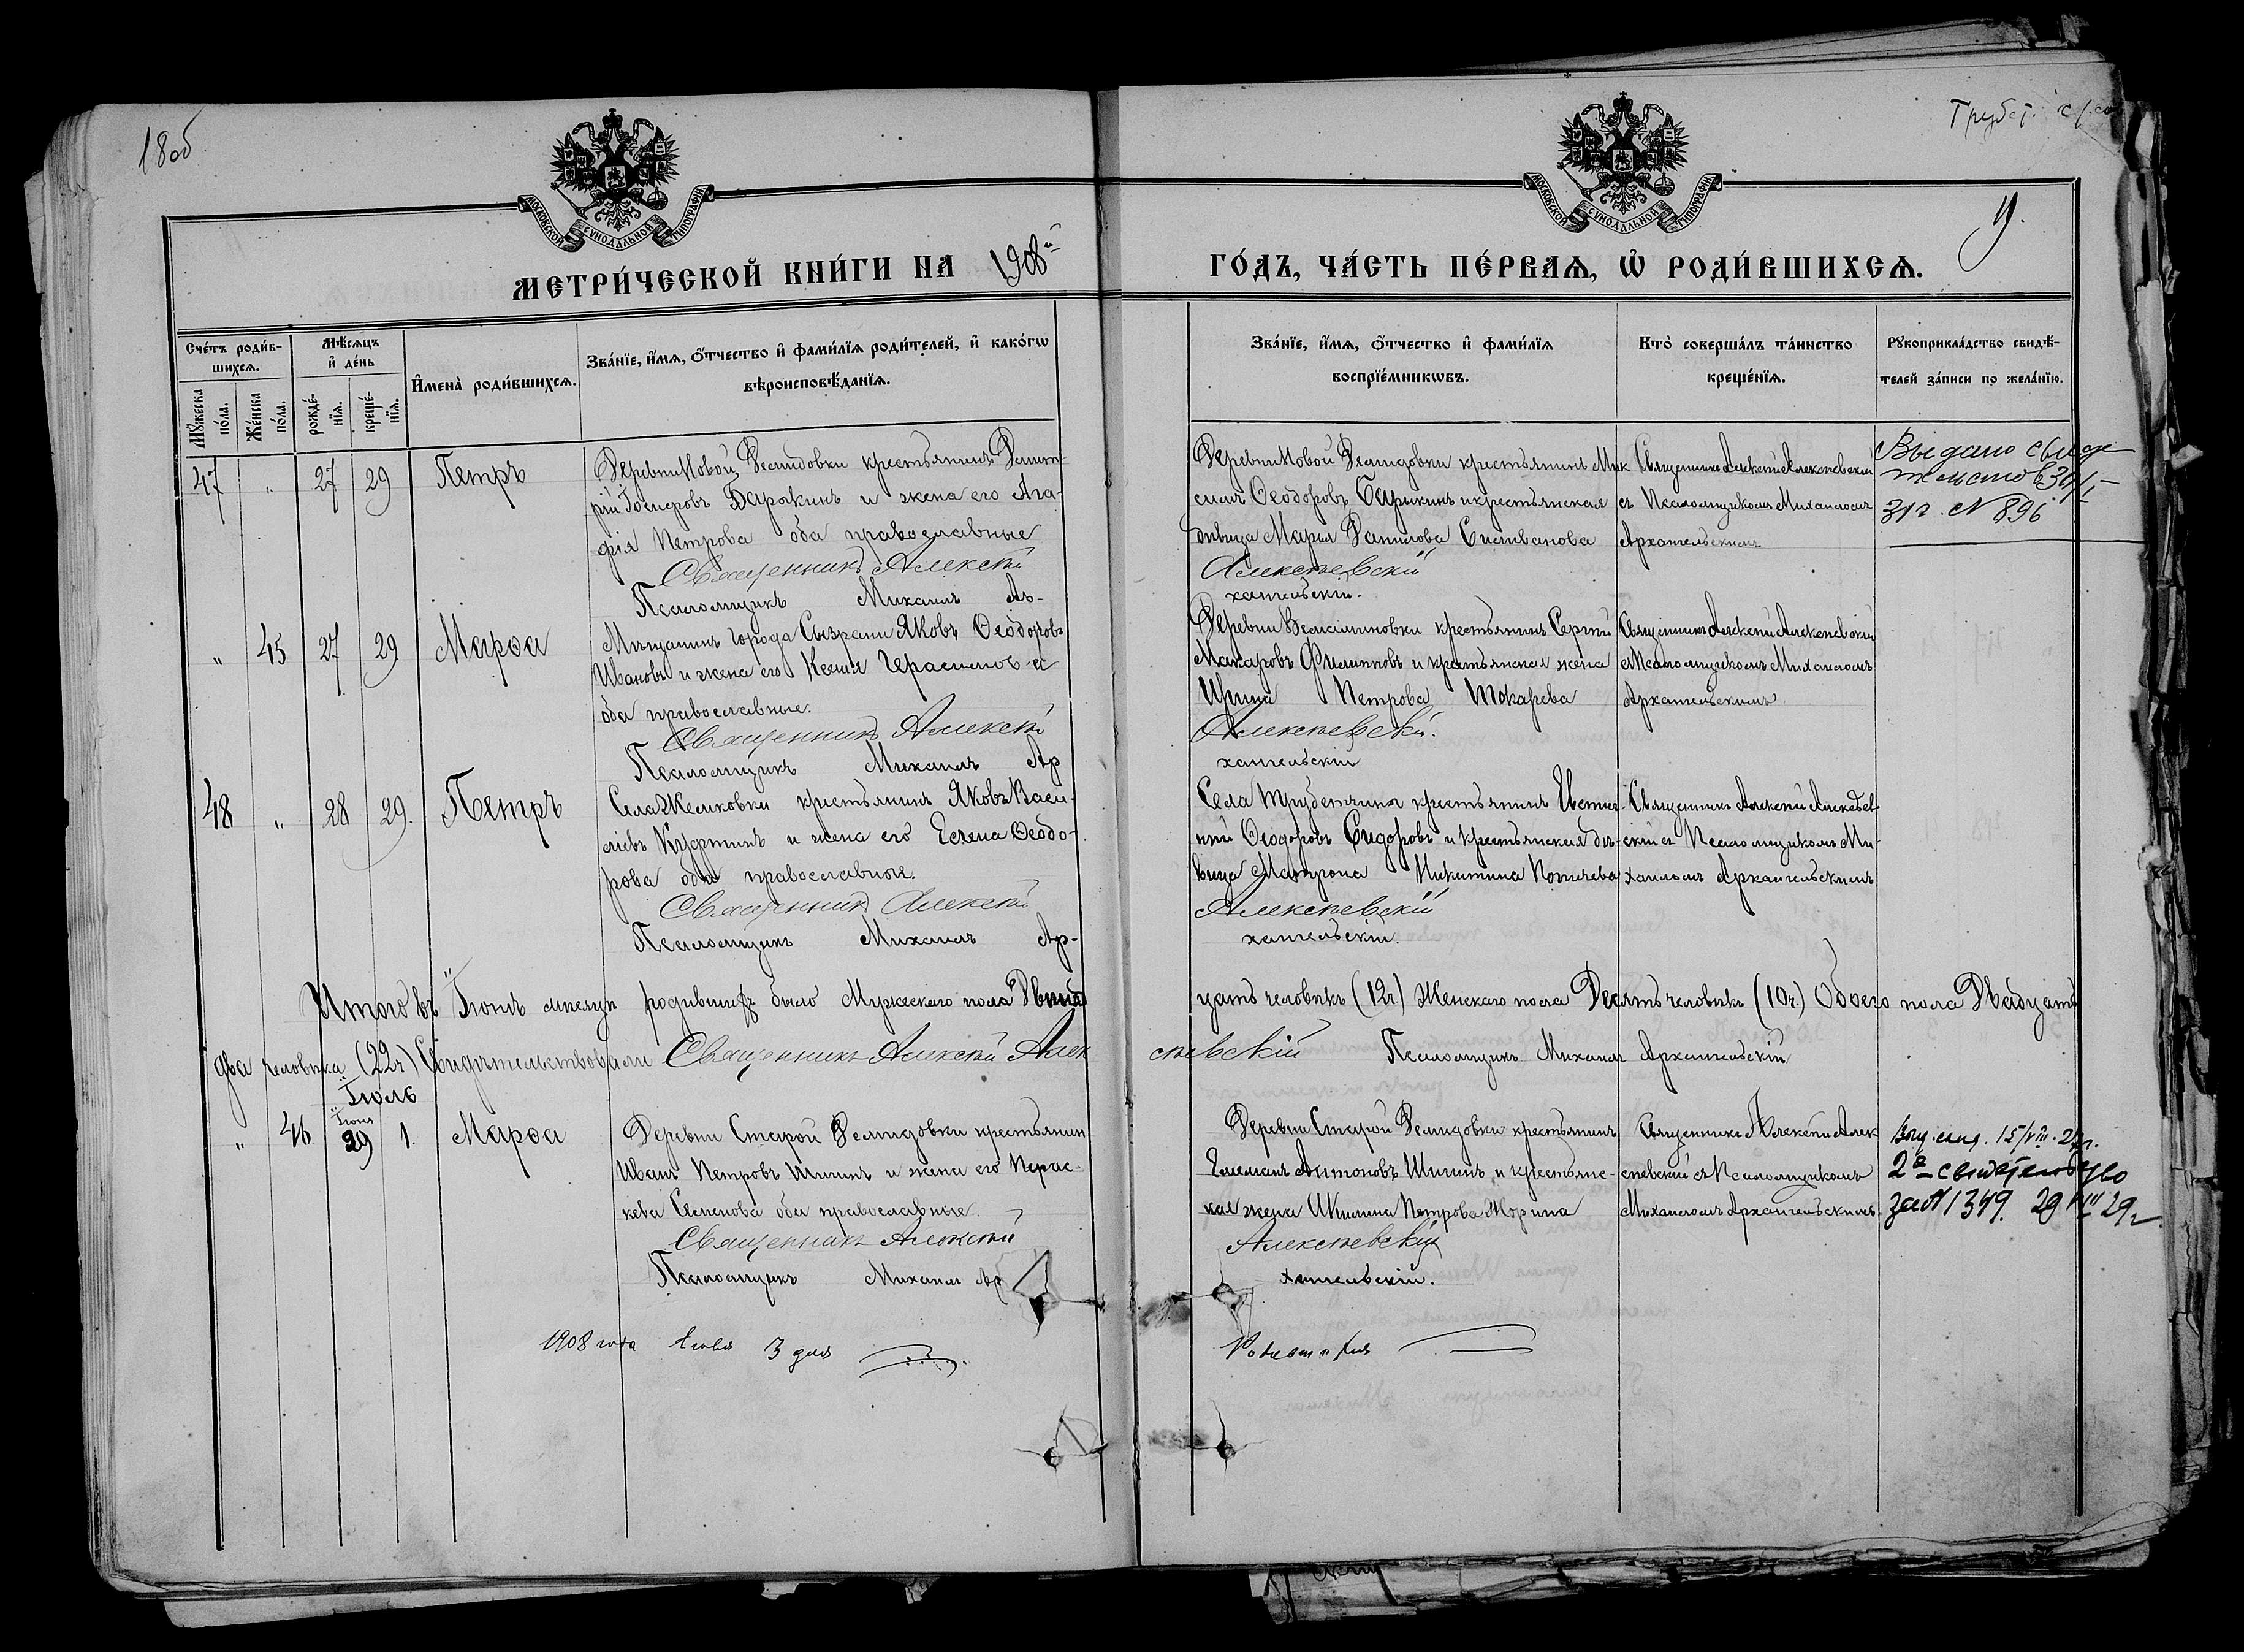 18об
Трубет. с/со
МОСКОВСКОЙ СУНОДАЛЬНОЙ ТИПОГРАФІИ
МОСКОВСКОЙ СУНОДАЛЬНОЙ ТИПОГРАФІИ
МЕТРИ́ЧЕСКОЙ КНИ́ГИ НА 1908й
ГО́ДЪ, ЧА́СТЬ ПЕ́РВАѦ, Ѡ҆ РОДИ́ВШИХСѦ.
Сче́тъ роди́в-
шихсѧ.
Мꙋ́жеска по́ла.
Же́нска по́ла.
Мѣ́сѧцъ и҆ де́нь
рожде́-нїѧ.
креще́-нїѧ.
И҆мена̀ роди́вшихсѧ.
Зва́нїе, и҆́мѧ, ѻ҆́тчество и҆ фами́лїѧ роди́телей, и҆ како́гѡ
вѣроисповѣ́данїѧ.
Зва́нїе, и҆́мѧ, ѻ҆́тчество и҆ фами́лїѧ
воспрїе́мникѡвъ.
Кто̀ соверша́лъ та́инство
креще́нїѧ.
Рꙋкоприкла́дство свидѣ́-
телей за́писи по жела́нїю.
47 " 27 29 Петръ
Деревни Новой Демидовки крестьянинъ Димит-
рій Барыкинъ и жена его Ага-
фія Петрова оба православные
Священникъ Алексѣй
Псаломщикъ Михаилъ Ар-
Деревни Новой Демидовки крестьянинъ Мак
симъ Ѳеодоровъ Барыкинъ и крестьянская
дѣвица Марья Данилова Селиванова
Алексѣевскій
хангельскій.
Священникъ Алексѣй Алексѣевскій
съ Псаломщикомъ Михаиломъ
Архангельскимъ
Выдано свиде
тельство 30/I
31 г. N 896
" 45 27 29 Марѳа
Мѣщанинъ города Сызрани Яковъ Ѳеодоровъ
Ивановъ и жена его Ксенія Герасимова
оба православные.
Священникъ Алексѣй
Псаломщикъ Михаилъ Ар
Деревни крестьянинъ Сергѣй
Макаровъ Филипповъ и крестьянская жена
Ирина Петрова Токарева
Алексѣевскій.
хангельскій
Священникъ Алексѣй Алексѣевскій
съ Псаломщикомъ Михаиломъ
Архангельскимъ
48 " 28 29. Петръ
Села крестьянинъ Яковъ Васи-
ліевъ и жена его Елена Ѳеодо-
рова оба православные.
Священникъ Алексѣй
Псаломщикъ Михаилъ Ар-
Села Трубетчина крестьянинъ Евстиг-
ній Ѳеодоровъ Сидоровъ и крестьянская дѣ-
вица Матрона Никитина
Алексѣевскій
хангельскій.
Священникъ Алексѣй Алексѣев-
скій съ Псаломщикомъ Ми-
хаиломъ Архангельскимъ
Итого въ Іюнѣ мѣсяцѣ родившихъ было Мужескаго пола Двѣнад
цать человѣкъ (12ч.) Женскаго пола Десять человѣкъ (10ч.) Обоего пола Двадцать
два человѣка (22ч) Свидѣтельствовали Священникъ Алексѣй Алек
сѣевскій Псаломщикъ Михаилъ Архангельскій
Іюль
" 46 Іюня 29 1. Марѳа
Деревни Старой Демидовки крестьянин
Иванъ Петровъ Шигинъ и жена его Парас-
кева Семенова оба православные.
Священникъ Алексѣй
Псаломщикъ Михаилъ Ар
Деревни Старой Демидовки крестьянинъ
Антоновъ Шигинъ и крестьянс-
кая жена Петрова
Алексѣевскій
хангельскій.
Священникъ Алексѣй Алек
сѣевскій съ Псаломщикомъ
Михаиломъ Архангельскимъ
Выд. свид. 15/VIII. 27г.
2е свидетельство
за N 1349. 29 VIII 29г
1908 года 3 дня